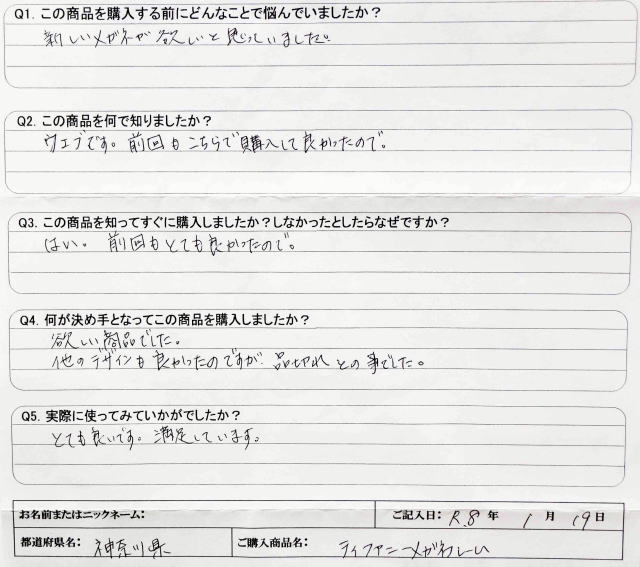 Q1. この商品を購入する前にどんなことで悩んでいましたか？
新しいメガネが欲しいと思っていました。
Q2. この商品を何で知りましたか？
ウェブです。前回もこちらで購入して良かったので。
Q3. この商品を知ってすぐに購入しましたか？しなかったとしたらなぜですか？
はい。前回もとても良かったので。
Q4. 何が決め手となってこの商品を購入しましたか？
欲しい商品でした。
他のデザインも良かったのですが品切れとの事でした。
Q5. 実際に使ってみていかがでしたか？
とても良いです。満足しています。
お名前またはニックネーム：
ご記入日： R.8 年 1 月 19 日
都道府県名： 神奈川県
ご購入商品名： ティファニーメガネ